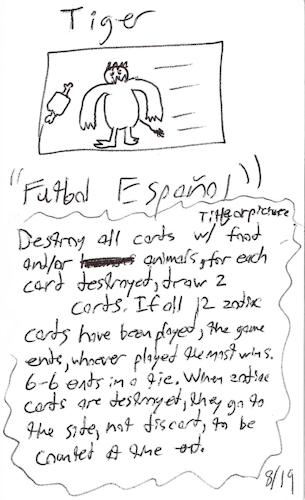 Tiger
"Futbol Español"
picture
Destroy all cards w/ food
and/or animals, for each
card destroyed, draw 2
cards. If all 12 zodiac
cards have been played, the game
ends, whoever played the most wins.
6-6 ends in a tie. When zodiac
cards are destroyed, they go to
the side, not discard, to be
counted at the end.
8/19